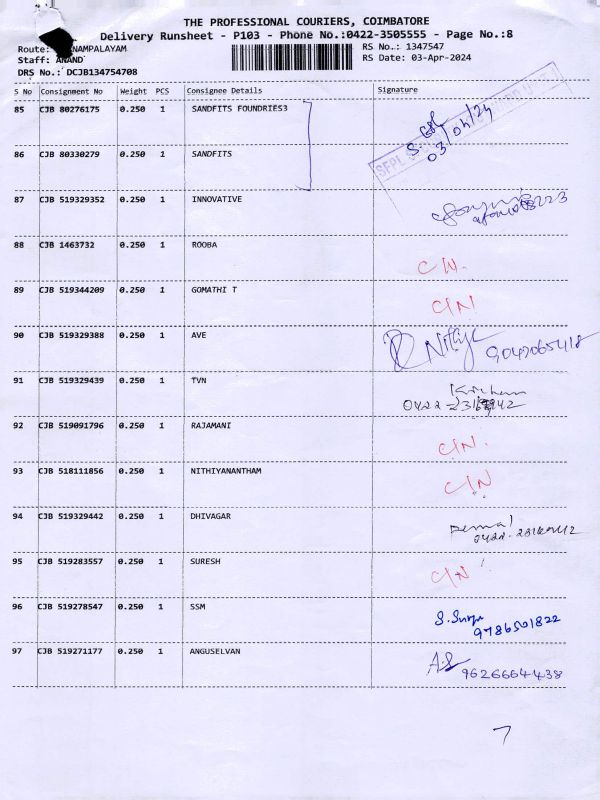 THE PROFESSIONAL COURIERS, COIMBATORE
Delivery Runsheet - P103 - Phone No.:0422-3505555 - Page No.:8
Route: NAMPALAYAM
RS No.: 1347547
Staff: ANAND
RS Date: 03-Apr-2024
DRS No.: DCJB134754708
S No Consignment No Weight PCS Consignee Details Signature
85 CJB 80276175 0.250 1 SANDFITS FOUNDRIES3
03/04/24
86 CJB 80330279 0.250 1 SANDFITS
87 CJB 519329352 0.250 1 INNOVATIVE
88 CJB 1463732 0.250 1 ROOBA
C/N.
89 CJB 519344209 0.250 1 GOMATHI T
C/N
90 CJB 519329388 0.250 1 AVE
Nithya 9047065418
91 CJB 519329439 0.250 1 TVN
92 CJB 519091796 0.250 1 RAJAMANI
C/N.
93 CJB 518111856 0.250 1 NITHIYANANTHAM
C/N
94 CJB 519329442 0.250 1 DHIVAGAR
95 CJB 519283557 0.250 1 SURESH
C/N
96 CJB 519278547 0.250 1 SSM
S. Surya
9786501822
97 CJB 519271177 0.250 1 ANGUSELVAN
9626664438
7